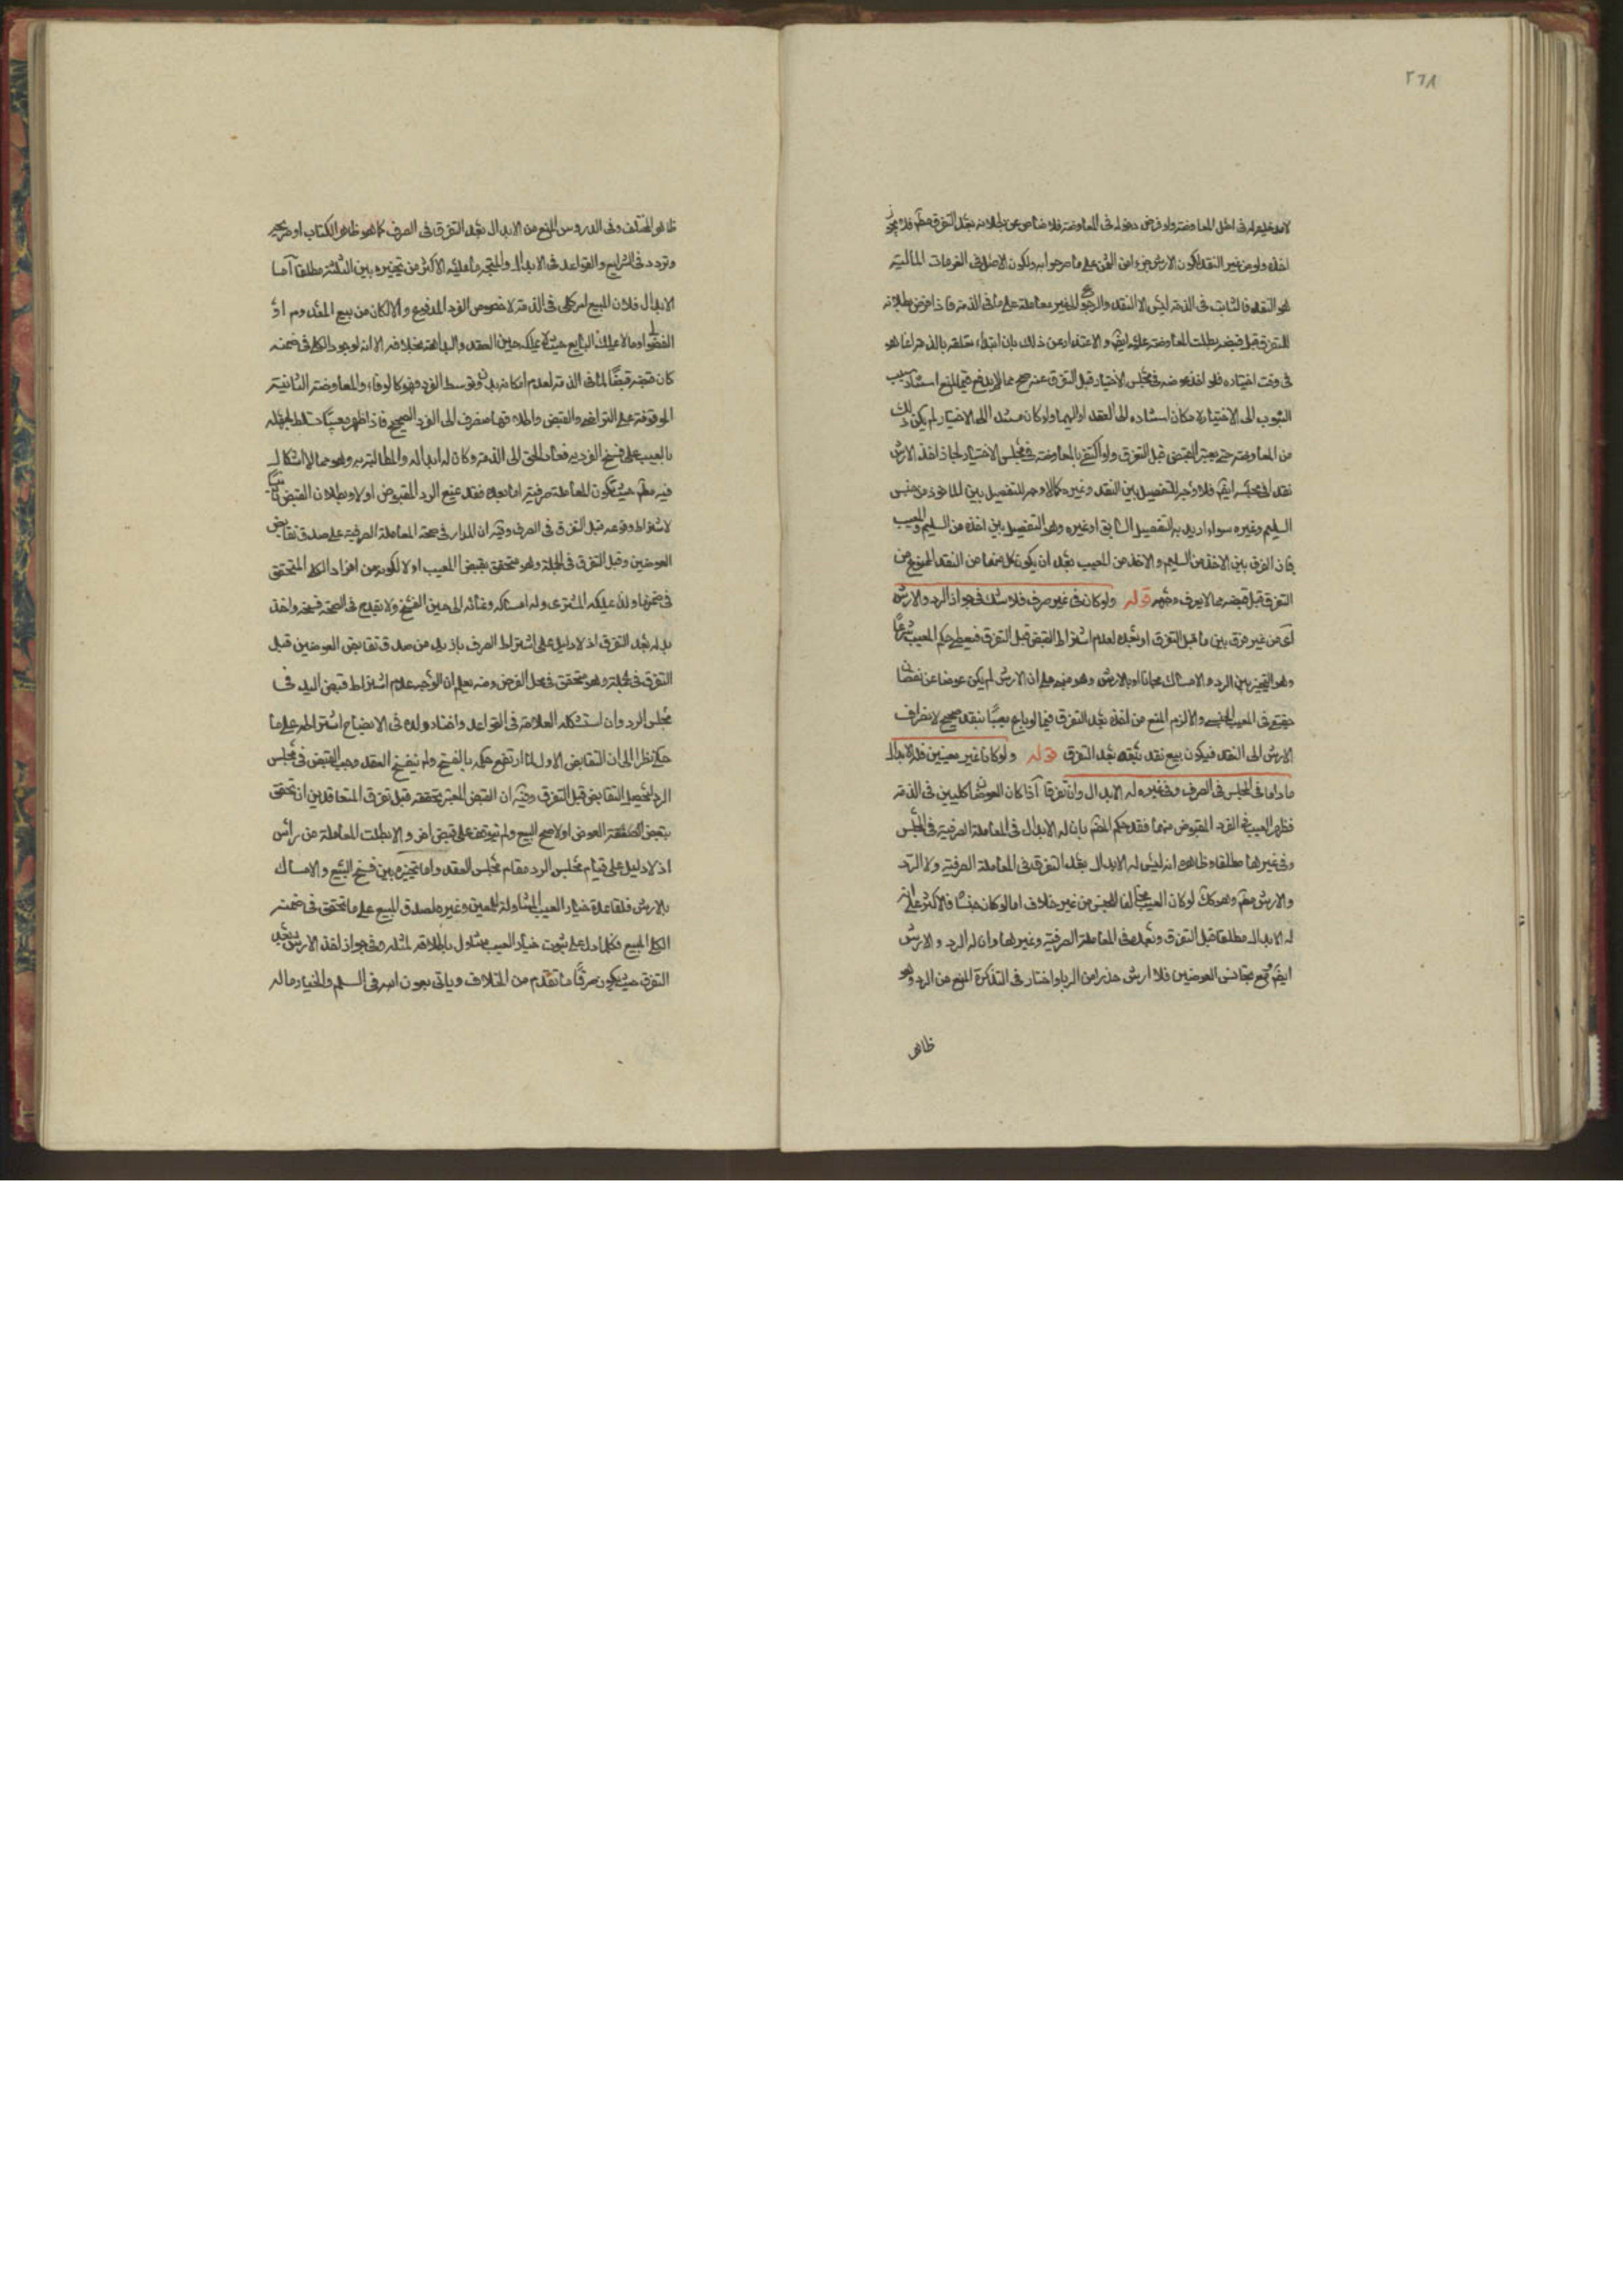 ٢٦٨
لامدخلية له في اصل المعاوضة ولو فرض دخوله في المعاوضة فلا مناص عن بطلانه بعد التفرق مطم فلا يجوز
اخذه ولو من غير النقد لكون الارش جزءا من الثمن على ما صرحوا به ولكون الاصل في الغرمات المالية
هو النقد فالثابت في الذمة ليس الا النقد والرجوع للغير معاملة على ما في الذمة فاذا فرض بطلانه
للتفرق قبل قبضه بطلت المعاوضة عليه ايضا والاعتذار عن ذلك بان ابتداء تعلقه بالذمة انما هو
في وقت اختياره فلو اخذ عوضه في مجلس الاختيار قبل التفرق عنه صح مما لا يدفع قيم المنع استناد سبب
الثبوت الى الاختيار لامكان استناده الى العقد او اليهما ولو كان مستند الى الاختيار لم يكن ذلك
من المعاوضة حتى يعتبر القبض قبل التفرق ولو اكتفى بالمعاوضة في مجلس الاختيار لجاز اخذ الارش
نقدا في مجلسه ايضا فلا وجه للتفصيل بين النقد وغيره كما لا وجه للتفصيل بين الماخوذ من جنس
السليم وغيره سواء اريد به التفصيل السابق او غيره وهو التفصيل بين اخذه من السليم والمعيب
فان الفرق بين الاخذ من السليم والاخذ من المعيب بعد ان يكون كل منهما من النقد الممنوع من
التفرق قبل قبضه مما لا يعرف وجهه قوله ولو كان في غير صرف فلا شك في جواز الرد والارش
آه من غير فرق بين ما قبل التفرق او بعده لعدم اشتراط القبض قبل التفرق فيعطى حكم المعيب شرعا
وهو التخيير بين الرد والامساك مجانا او بالارش وهو مبني على ان الارش لم يكن عوضا عن نقصان
حقيقة في المعيب الجنسي والا لزم المنع من اخذه بعد التفرق فيما لو باع معيبا بنقد صحيح لانصراف
الارش الى النقد فيكون بيع نقد بنقد بعد التفرق قوله ولو كانا غير معينين فله الابدال
ماداما في المجلس في الصرف وفي غيره له الابدال وان تفرقا آذا كان العوضان كليين في الذمة
فظهر العيب في الفرد المقبوض منهما فقد حكم المصم بان له الابدال في المعاملة الصرفية في المجلس
وفي غيرها مطلقا وظاهره انه ليس له الابدال بعد التفرق في المعاملة الصرفية ولا الرد
والارش مطم وهو كك لو كان العيب مخالفا للجنس من غير خلاف اما لو كان جنسا فالاكثر على انه
له الابدال مطلقا قبل التفرق وبعده في المعاملة الصرفية وغيرها وان له الرد والارش
ايضا ومع تجانس العوضين فلا ارش حذرا من الربا واختار في التذكرة المنع من الرد وهو
ظاهر
ظاهر المختلف وفي الدروس المنع من الابدال بعد التفرق في الصرف كما هو ظاهر الكتاب او صريحه
وتردد في الشرايع والقواعد في الابدال والمتجه ما عليه الاكثر من تخييره بين الثلثة مطلقا آما
الابدال فلان المبيع امر كلي في الذمة لا خصوص الفرد المدفوع والا لكان من بيع المعدوم او
الفضولي او ما لا يملك البايع حيث لا يملكه حين العقد والبداهة بخلافه الا انه لوجود الكلي في ضمنه
كان قبضه قبضا لما في الذمة لعدم امكانه بدون توسط الفرد فهو كالوفاء والمعاوضة الثانية
الموقوفة على التراضي والقبض واطلاقهما منصرف الى الفرد الصحيح فاذا ظهر معيبا تسلط لجهله
بالعيب على فسخ الفردية فعاد الحق الى الذمة وكان له ابداله والمطالبة به وهو مما لا اشكال
فيه مطم حيث لا تكون المعاملة صرفية اما بعده فقد يمنع الرد المقبوض اولا وبطلان القبض
لاشتراط وقوعه قبل التفرق في الصرف وفيه ان المدار في صحة المعاملة الصرفية على صدق تقابض
العوضين وقبل التفرق في الجملة وهو متحقق بقبض المعيب اولا لكونه من افراد الكلي المتحقق
في ضمنها ولذا يملكه المشتري وله امساكه ونمائه الى حين الفسخ ولا يقدح في الصحة فسخه واخذ
بدله بعد التفرق اذ لا دليل على اشتراط الصرف بازيد من صدق تقابض العوضين قبل
التفرق في الجملة وهو متحقق في محل الفرض ومنه يعلم ان الوجه عدم اشتراط قبض البدل في
مجلس الرد وان استشكله العلامة في القواعد واختار ولده في الايضاح اشتراطه على ما
حكي نظرا الى ان التقابض الاول لما ارتفع حكمه بالفسخ ولم ينفسخ العقد وجب القبض في مجلس
الرد ليحصل التقابض قبل التفرق وفيه ان القبض المعتبر تحققه قبل تفرق المتعاقدين ان تحقق
بقبض العوض اولا صح البيع ولم يتوقف على قبض اخر والا بطلت المعاملة من رأس
اذ لا دليل على قيام مجلس الرد مقام مجلس العقد واما تخييره بين فسخ البيع والامساك
بالارش فلقاعدة خيار العيب الشاملة للمعين وغيره لصدق المبيع على ما تحقق في ضمنه
الكلي المبيع فكلما دل على ثبوت خيار العيب متناول باطلاقه لمثله وفي جواز اخذ الارش بعد
التفرق حيث يكون صرفا ما تقدم من الخلاف ويأتي بعون الله في السلم والخيار ماله